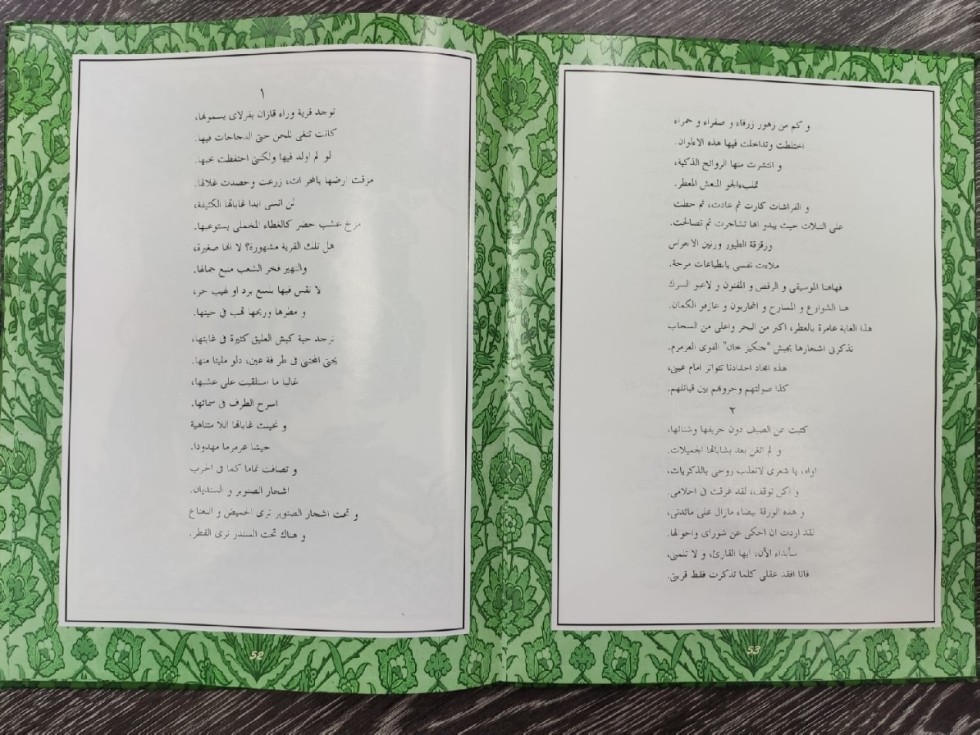 ١
توجد قرية وراء قازان بقرلاى يسمونها،
كانت تنغى للحن حتى الدجاجات فيها.
لو لم اولد فيها ولكنى احتفظت بحبها.
مزقت ارضها بالمحراث، زرعت وحصدت غلالها.
لن انسى ابدا غاباتها الكثيفة،
مرج عشب خضر كالغطاء المخملى يستوعبها.
هل تلك القرية مشهورة؟ لا انها صغيرة،
والنهير فخر الشعب منبع جمالها.
لا نقس فيها بلسع برد او لهيب حر،
و مطرها وريحها تهب فى حينها.
نرجد حبة كبش العليق كثيرة فى غابتها،
يجنى المجتنى فى طرفة عين، دلو مليئا منها.
غالبا ما استلقيت على عشبها،
اسرح الطرف فى سمائها.
و تخيلت غاباتها اللا متناهية
جيشا عرمرما مهدودا.
و تصافت تماما كما فى الحرب
اشجار الصنوبر و السنديان.
و تحت اشجار الصنوبر ترى الحميض و النعناع
و هناك تحت السندر ترى الفطر.
52
و كم من زهور زرقاء و صفراء و حمراء
اختلطت وتداخلت فيها هذه الالوان.
و انتشرت منها الروائح الذكية،
الجو المنعش المعطر.
و الفراشات كارت ثم عادت، ثم حطت
على النبلات حيث يبدو انها تشاجرت ثم تصالحت.
وزقزقة الطيور ورنين الاجراس
ملات نفسى بانطباعات مرحة.
فهاهنا الموسيقى و الرقص و المغنون و لاعبو السرك
هنا الشوارع و المسارح و المحاربون و عازفو الكمان.
هذا الغابة عامرة بالعطر، اكبر من البحر واعلى من السحاب
تذكرنى اشجارها بجيش "جنكيز خان" القوى العرمرم.
هذه امجاد اجدادنا تتواتر امام عينى،
كذا صولتهم وحروبهم بين قبائلهم.
٢
كتبت عن الصيف دون خريفها وشتائها،
و لم اتغن بعد بشاباتها الجميلات.
اواه، يا شعرى لاتعذب روحى بالذكريات،
و لكن توقف، لقد غرقت فى احلامى.
و هذه الورقة بيضاء مازال على مائدتى،
لقد اردت ان احكى عن شوراى واحوالها.
سأبداء الآن، ايها القارئ، و لا تلمنى،
فانا افقد عقلى كلما تذكرت فقط قريتى.
53